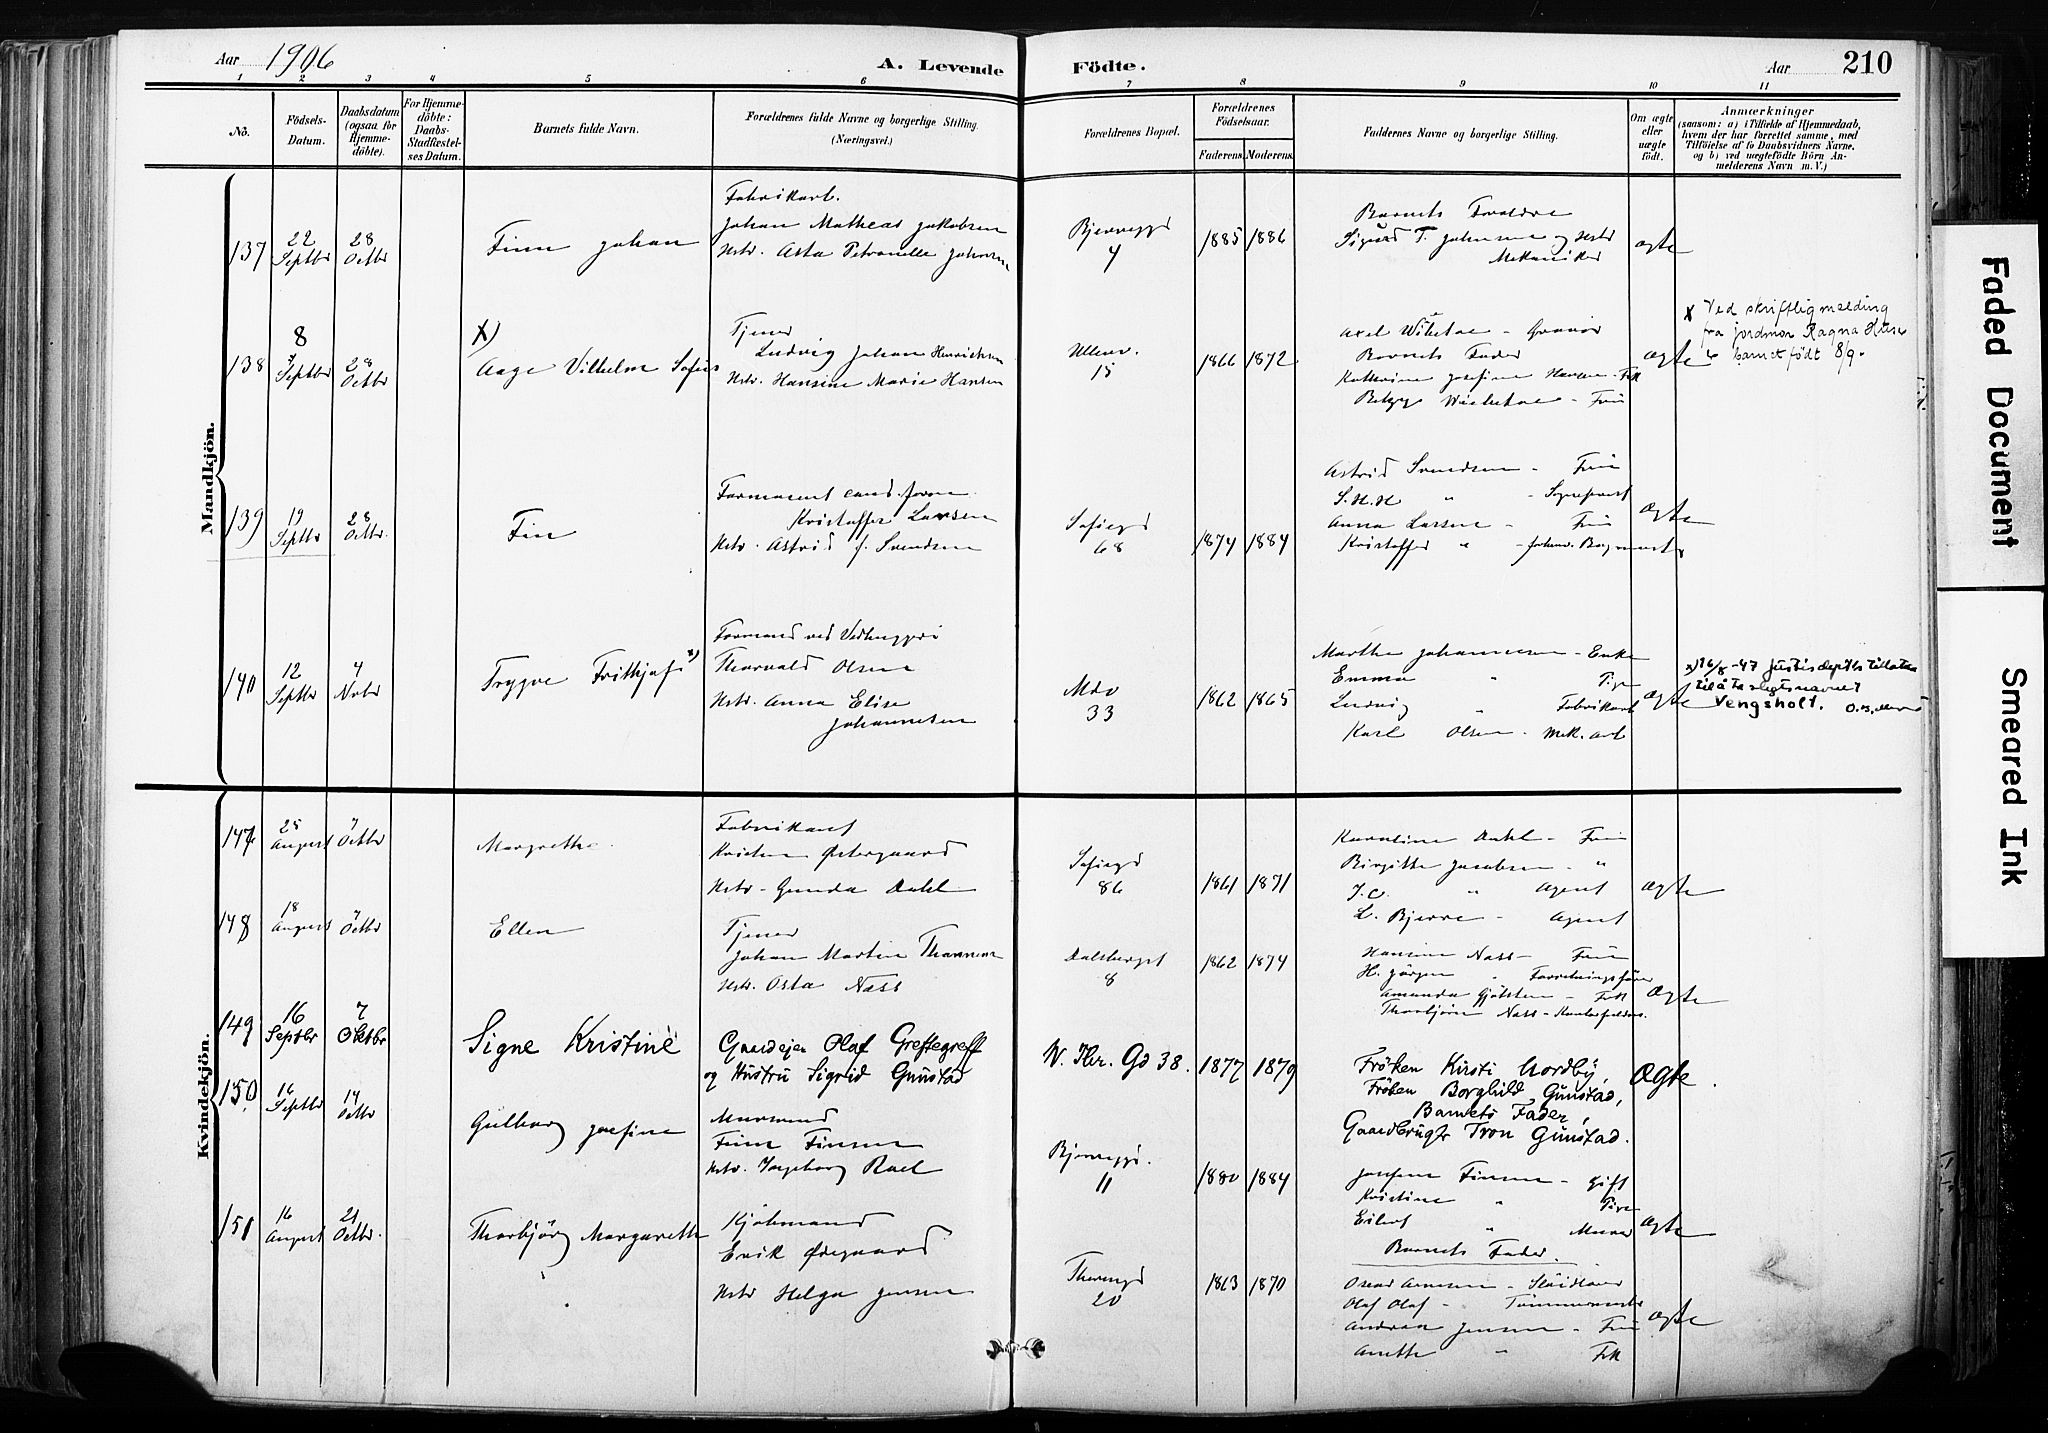 Aar 1906
A. Levende Födte.
Aar 210
1 2 3 4 5 6 7 8 9 10 11
No.
Födsels-
Datum.
Daabsdatum
(ogsaa for
Hjemme-
döbte).
For Hjemme-
döbte:
Daabs-
Stadfæstel-
ses Datum.
Barnets fulde Navn.
Forældrenes fulde Navne og borgerlige Stilling.
(Næringsvei.)
Forældrenes Bopæl.
Forældrenes
Födselsaar.
Faderens. Moderens.
Faddernes Navne og borgerlige Stilling.
Om ægte
eller
uægte
födt.
Anmærkninger
(saasom: a) i Tilfælde af Hjemmedaab,
hvem der har forrettet samme, med
Tilföielse af to Daabsvidners Navne.
og b) ved uægtefödte Börn An-
melderens Navn m. V.)
Mandkjön.
137
22 Septbr
28 Octbr
Finn Johan
Fabrikarb.
Johan Matheas Jakobsen
Hstr. Asta Petronelle Johnsen
4
1885 1886
Barnets Forældre
Sigurd T. Johnsen og Hstr
Mekaniker
Ægte
138
8
Septbr
28 Octbr
X)
Aage Vilhelm Sofus
Tjener
Ludvig Johan Henriksen
Hstr. Hansine Marie Hansen
Ullerv.
15
1866 1872
Axel
Barnets Fader
Kathrine Josefine Hansen - Frk
Fru
Ægte
X Ved skriftlig melding
fra jordmor Ragna Huse
er barnet födt 8/9.
139
19 Septbr
28 Octbr.
Fin
Farmaceut cand. farm.
Kristoffer Larsen
Hstr. Astrid f. Svendsen
Sofiegd
68
1874 1884
Astrid Svendsen - Fru
S.H.H " - Sogneprest
Anna Larsen - Fru
Kristoffer "
Ægte
140
12 Septbr
4 Novbr
Trygve Frithjof x)
Formand ved Vedhuggeri
Thorvald Olsen
Hstr. Anna Elise
Johannesen
33
1862 1865
Marthe Johannesen - Enke
Emma " Pige
Ludvig " Fabrikarb
Karl Olsen - Mek. arb
Ægte
x) 16/8-47 Justisdepts tillatelse
til å ta slegtsnavnet
Vengsholt.
Kvindekjön.
147
25 August
7 Octbr
Margrethe
Fabrikant
Kristen Østergaard
Hstr - Gunda Dahl
Sofiegd
86
1861 1871
Karoline Dahl - Fru
Birgitte Jacobsen - "
J.C. " Agent
L. Bjerre - Agent
Ægte
148
18 August
7 Octbr
Ellen
Tjener
Johan Martin Thoresen
Hstr. Osta Næss
Dalsberget
8
1862 1874
Hansine Næss - Fru
H. Jørgen " Forretningsfører
Amanda Gjölsten - Frk
Thorbjörn Næss - Kontorfuldm.
Ægte
149
16 Septbr
7 Oktbr
Signe Kristine
Gaardejer Olaf Greftegreff
og Hustru Sigrid Gunstad
N. Ther. Gd 38.
1877 1879
Fröken Kirsti Nordby,
Fröken Borghild Gunstad,
Barnets Fader,
Gaardbruger Tron Gunstad.
Ægte.
150
16 Septbr
14 Octbr
Gulborg Josefine
Murersvend
Finn Finsen
Hstr. Ingeborg Roel
11
1880 1884
Josefine Finsen - Gift
Kristine " Pige
Eilert " Murer
Barnets Fader.
Ægte
151
16 August
21 Octbr.
Thorbjörg Margarethe
Kjöbmand
Erik Ødegaard
Hstr Helga Jensen
Theresegd
20
1863 1870
Oscar Arnesen
Olaf Olaf - Tömmermester
Andrea Jensen - Fru
Anette " Frk
Ægte
Faded Document
Smeared Ink